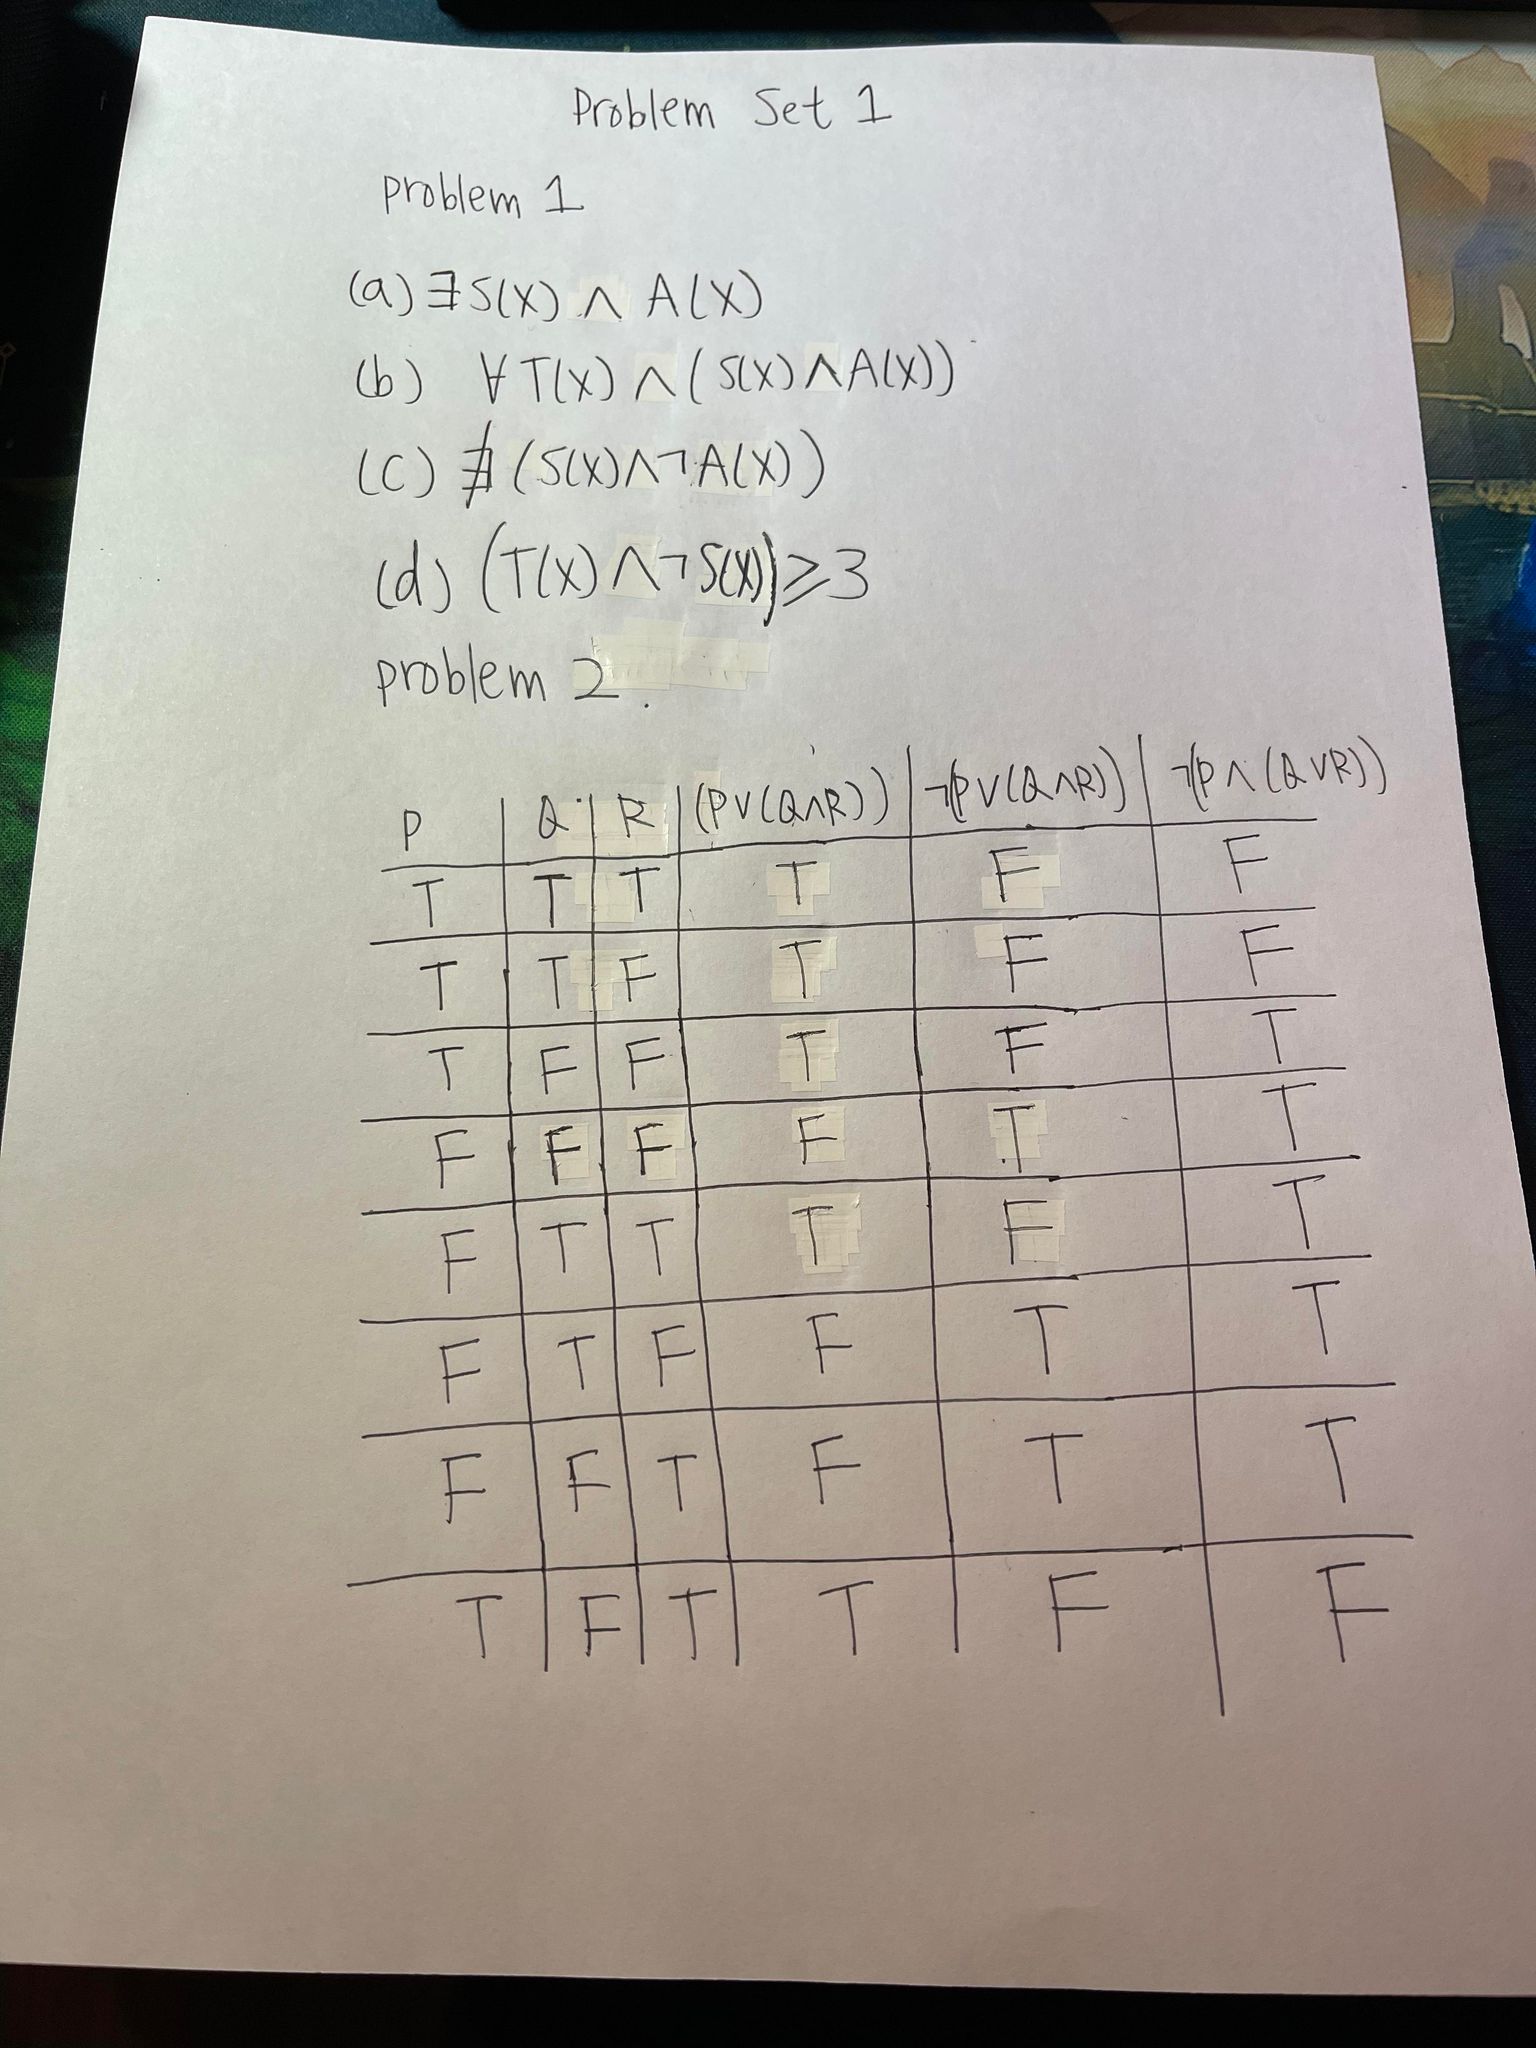 Problem Set 1
problem 1
(a) ∃S(X) ∧ A(X)
(b) ∀T(X) ∧ (S(X) ∧ A(X))
(c) ∄ (S(X) ∧ ¬A(X))
(d) (T(X) ∧ ¬S(X)) ⩾ 3
problem 2.
P | Q | R | (P∨(Q∧R)) | ¬(P∨(Q∧R)) | ¬(P∧(Q∨R))
T | T | T | T | F | F
T | T | F | T | F | F
T | F | F | T | F | T
F | F | F | F | T | T
F | T | T | T | F | T
F | T | F | F | T | T
F | F | T | F | T | T
T | F | T | T | F | F